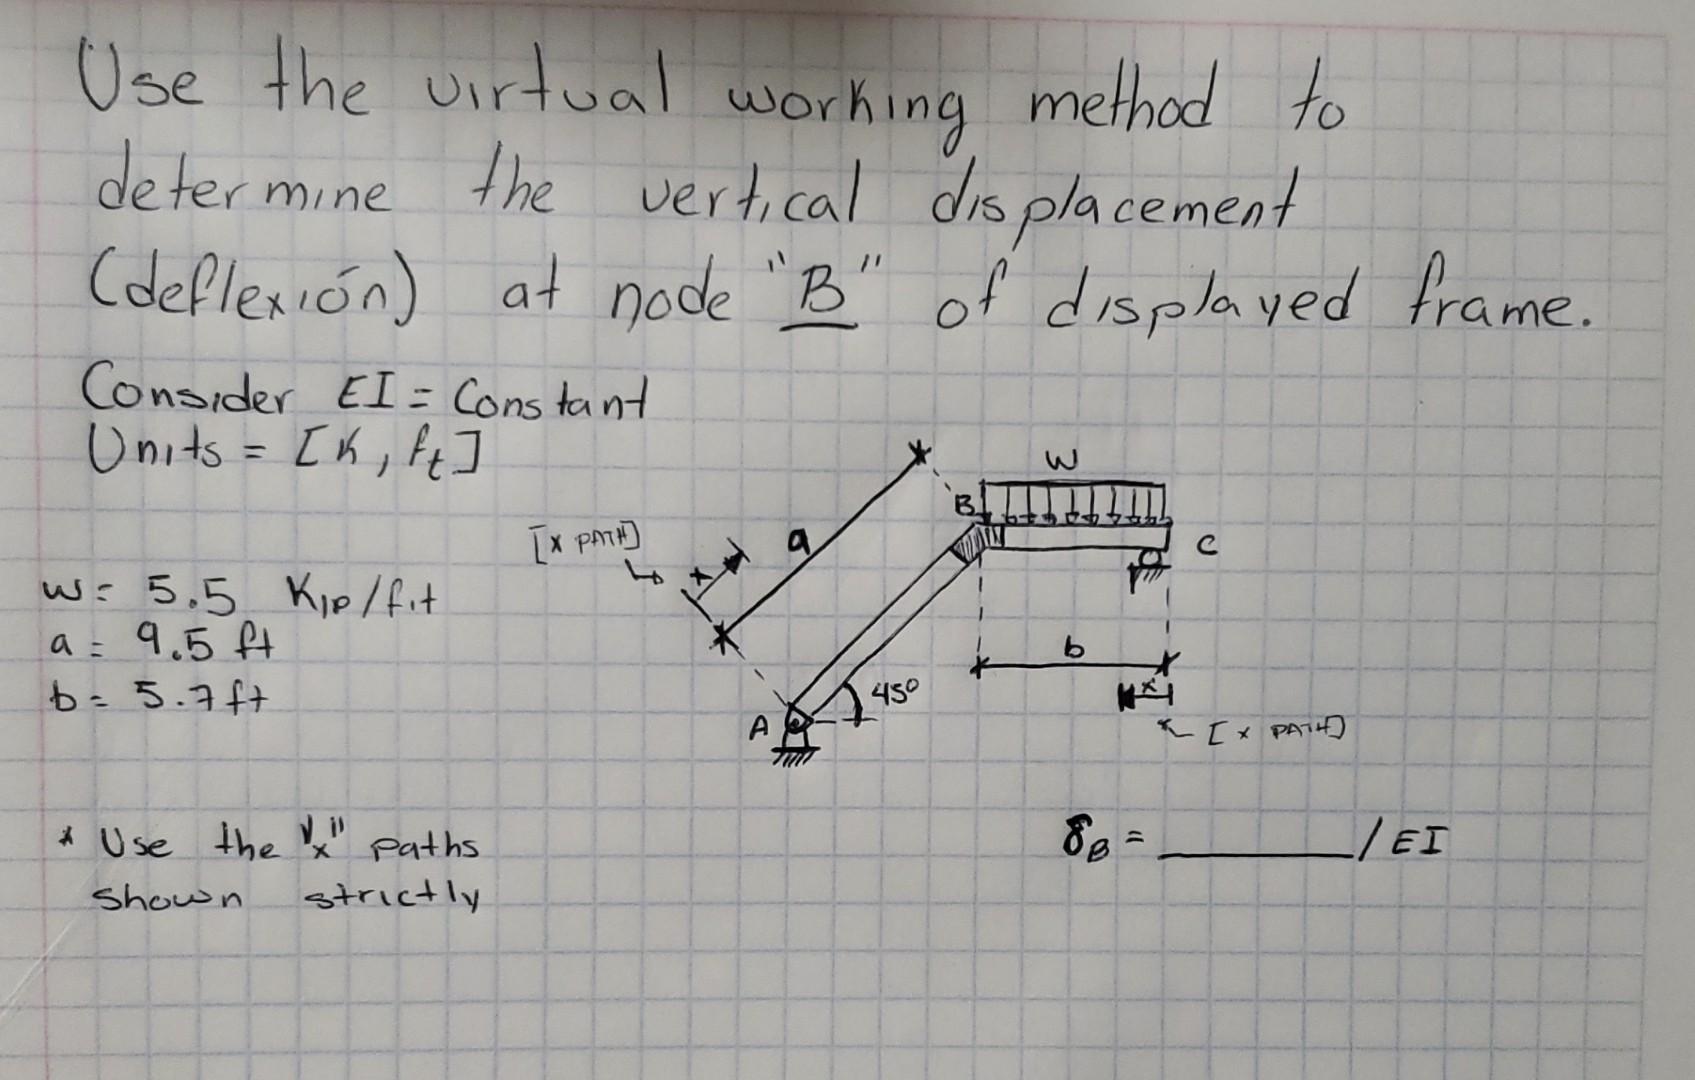 Use the virtual working method to
determine the vertical displacement
(deflexión) at node "B" of displayed frame.
Consider EI = Constant
Units = [K, ft]
w
B
[x PATH]
a
x
C
w= 5.5 Kip/f.t
a = 9.5 ft
b = 5.7 ft
b
45°
x
A
[x PATH]
* Use the "x" paths
shown strictly
δB = ________ / EI